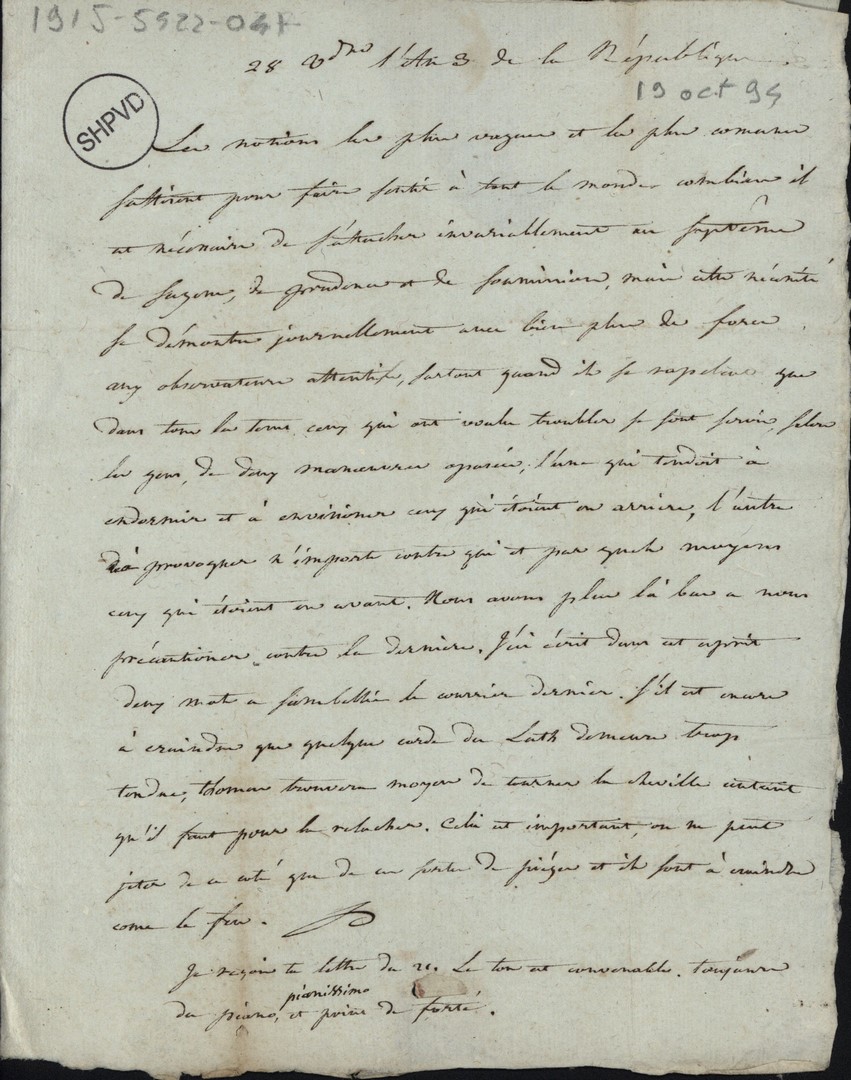 1915-5922-04R
28 Vdre l'An 3 de la République.
19 oct 94
SHPVD
Les notions les plus vagues et les plus comunes
suffiroient pour faire sentir à tout le monde combien il
est nécessaire de s'attacher invariablement au système
de sagesse, de prudence et de soumission, mais cette nécessité
se démontre journellement avec bien plus de force
aux observateurs attentifs, surtout quand ils se rapelent que
dans tous les tems ceux qui ont voulu troubler se sont servis, selon
les gens, de deux manœuvres oposées; l'une qui tendoit à
endormir et à environer ceux qui étoient en arriere, l'autre
à provoquer n'importe contre qui et par quels moyens
ceux qui étoient en avant. Nous avons plus là bas a nous
précautioner contre la derniere. J'ai écrit dans cet esprit
deux mots a le courrier dernier. S'il est encore
à craindre que quelque corde du Luth demeure trop
tendue, Thomas trouvera moyen de tourner la cheville autant
qu'il faut pour la relacher. Cela est important, on ne peut
jeter de ce coté que de ces sortes de piéges et ils sont à craindre
come le feu.
Je reçois ta lettre du 21. Le ton est convenable. toujours
du piano, pianissimo et point de forté.